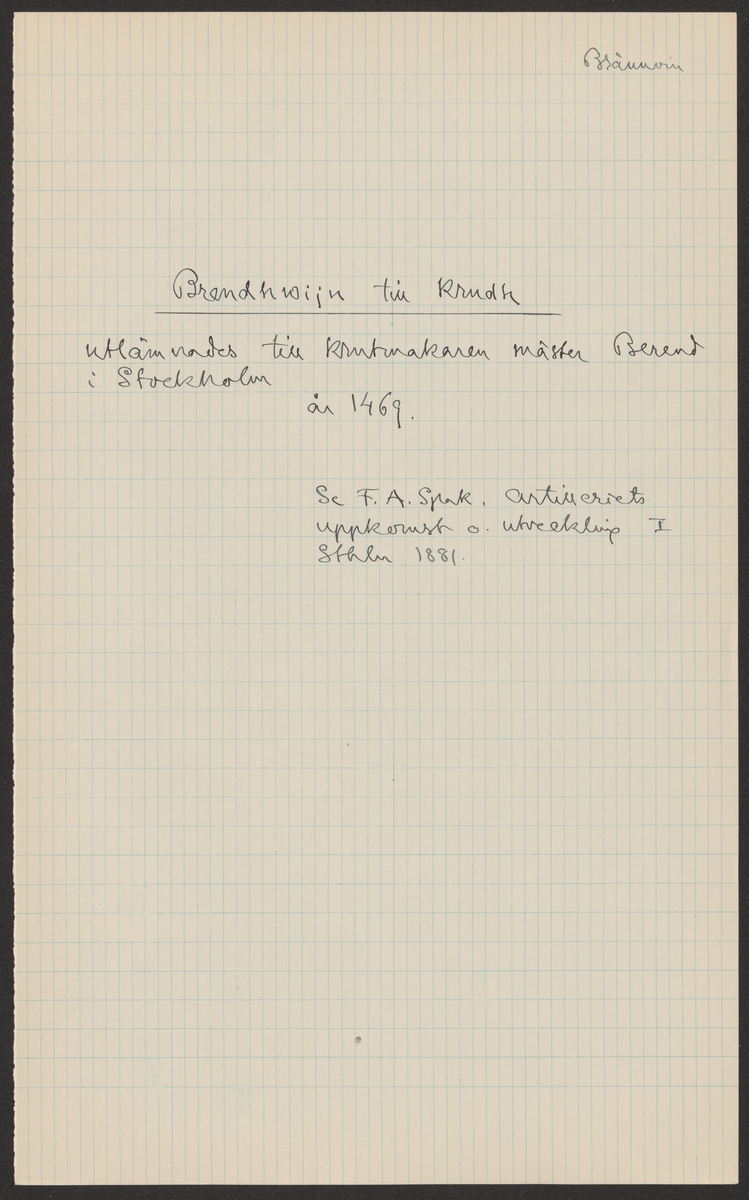 Brännvin
Brendhwijn till krudh
utlämnades till krutmakaren mäster Berend
i Stockholm
år 1469.
Se F. A. Spak. Artilleriets
uppkomst o. utveckling I
Sthlm 1881.